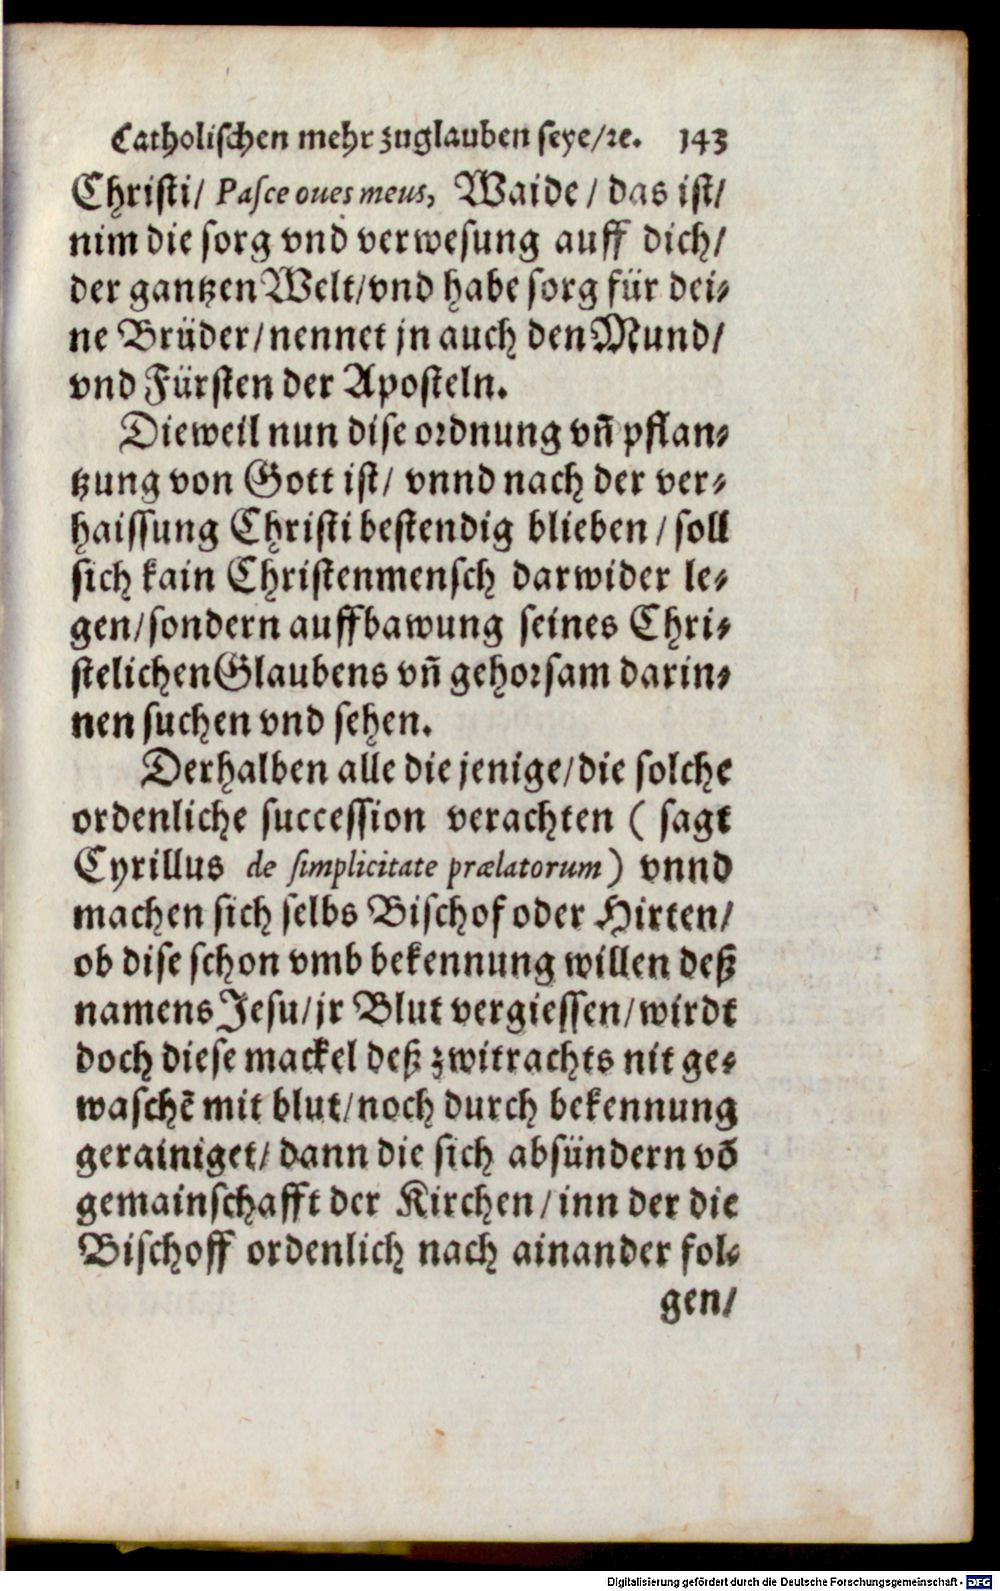 Catholischen mehr zuglauben seye/ꝛc. 143
Christi/ Pasce oues meus, Waide / das ist/
nim die sorg vnd verwesung auff dich/
der gantzen Welt/vnd habe sorg für dei⸗
ne Brüder/nennet jn auch den Mund/
vnd Fürsten der Aposteln.
Dieweil nun dise ordnung vñ pflan⸗
tzung von Gott ist/ vnnd nach der ver⸗
haissung Christi bestendig blieben / soll
sich kain Christenmensch darwider le⸗
gen/sondern auffbawung seines Chri⸗
stelichen Glaubens vñ gehorsam darin⸗
nen suchen vnd sehen.
Derhalben alle die jenige/die solche
ordenliche succession verachten ( sagt
Cyrillus de simplicitate prælatorum ) vnnd
machen sich selbs Bischof oder Hirten/
ob dise schon vmb bekennung willen deß
namens Jesu/jr Blut vergiessen/wirdt
doch diese mackel deß zwitrachts nit ge⸗
waschē mit blut/noch durch bekennung
gerainiget/ dann die sich absündern võ
gemainschafft der Kirchen/inn der die
Bischoff ordenlich nach ainander fol⸗
gen/
Digitalisierung gefördert durch die Deutsche Forschungsgemeinschaft - DFG